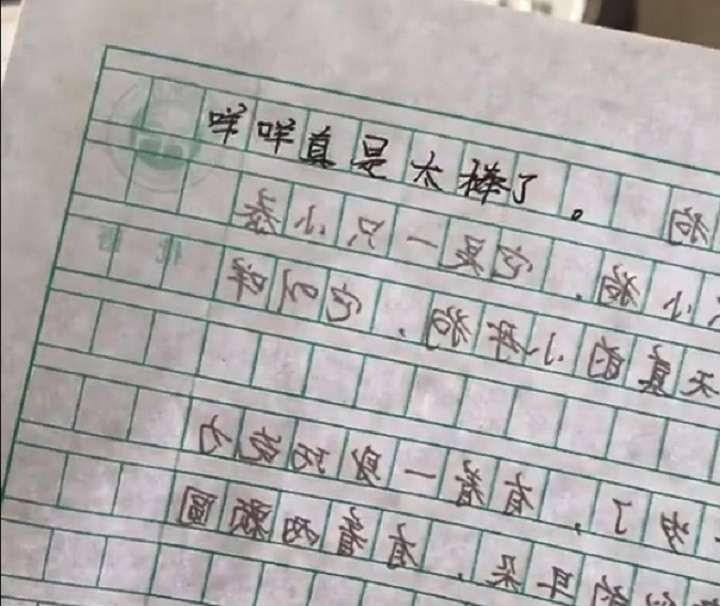 咩咩真是太棒了。
狗
小狗，它是一只小泰
天真的小胖狗，它叫咩
岁了，有着一身巧克力
的耳朵，有着两颗圆